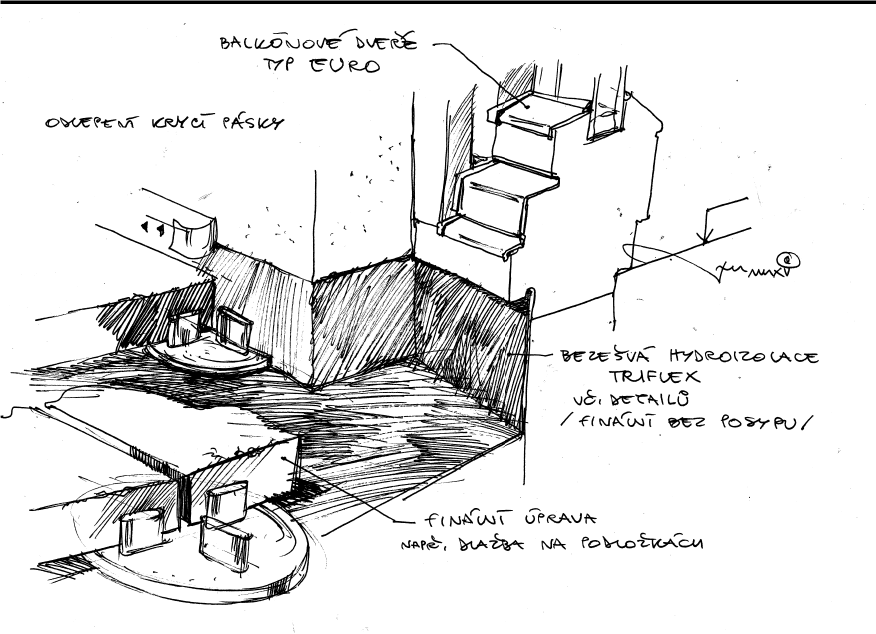 BALKÓNOVÉ DVEŘE
TYP EURO
ODLEPENÍ KRYCÍ PÁSKY
BEZEŠVÁ HYDROIZOLACE
TRIFLEX
VČ. DETAILŮ
/FINÁLNÍ BEZ POSYPU/
FINÁLNÍ ÚPRAVA
NAPŘ. DLAŽBA NA PODLOŽKÁCH